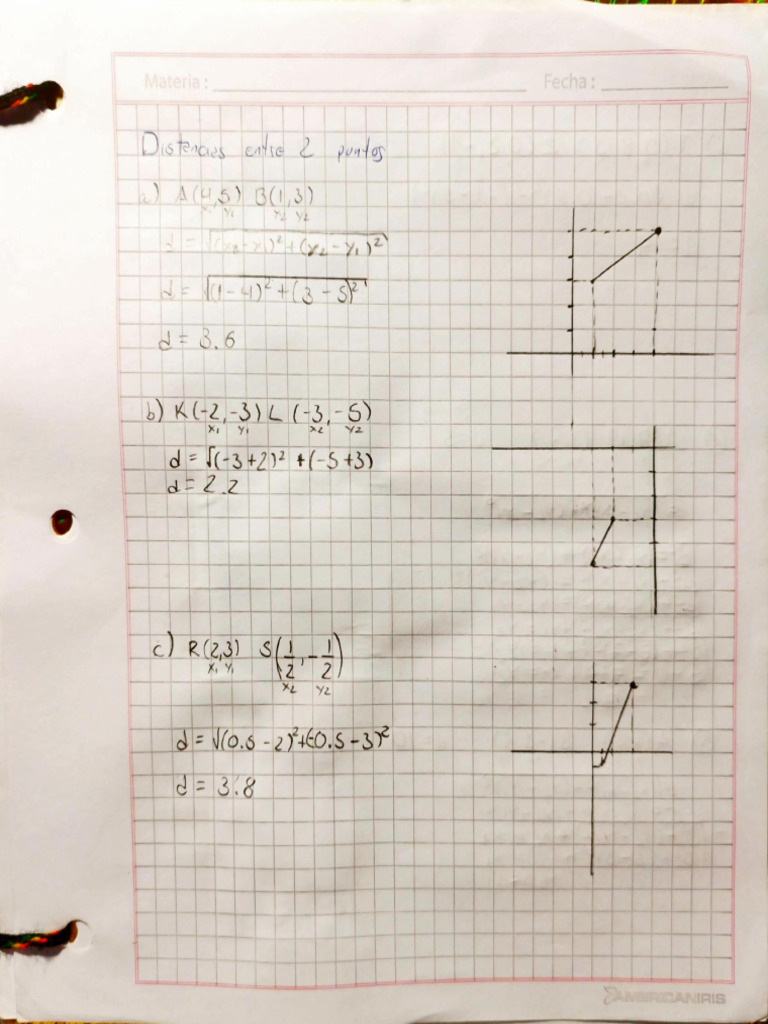 Materia : Fecha :
Distancias entre 2 puntos
a) A(4,5) B(1,3)
x₁ y₁ x₂ y₂
d = √(x₂-x₁)²+(y₂-y₁)²
d = √(1-4)²+(3-5)²
d = 3.6
b) K(-2,-3) L (-3,-5)
x₁ y₁ x₂ y₂
d = √(-3+2)² +(-5+3)
d = 2.2
c) R(2,3) S(1/2,-1/2)
x₁ y₁ x₂ y₂
d = √(0.5-2)²+(-0.5-3)²
d = 3.8
AMERICANIRIS